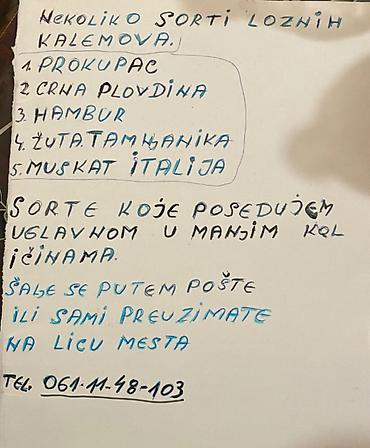 NEKOLIKO SORTI LOZNIH
KALEMOVA.
1. PROKUPAC
2. CRNA PLOVDINA
3. HAMBUR
4. ŽUTA.TAMNJANIKA
5. MUSKAT ITALIJA
SORTE KOJE POSEDUJEM
UGLAVNOM U MANJIM KOL
IČINAMA.
ŠALJE SE PUTEM POŠTE
ILI SAMI PREUZIMATE
NA LICU MESTA
TEL. 061-11-48-103